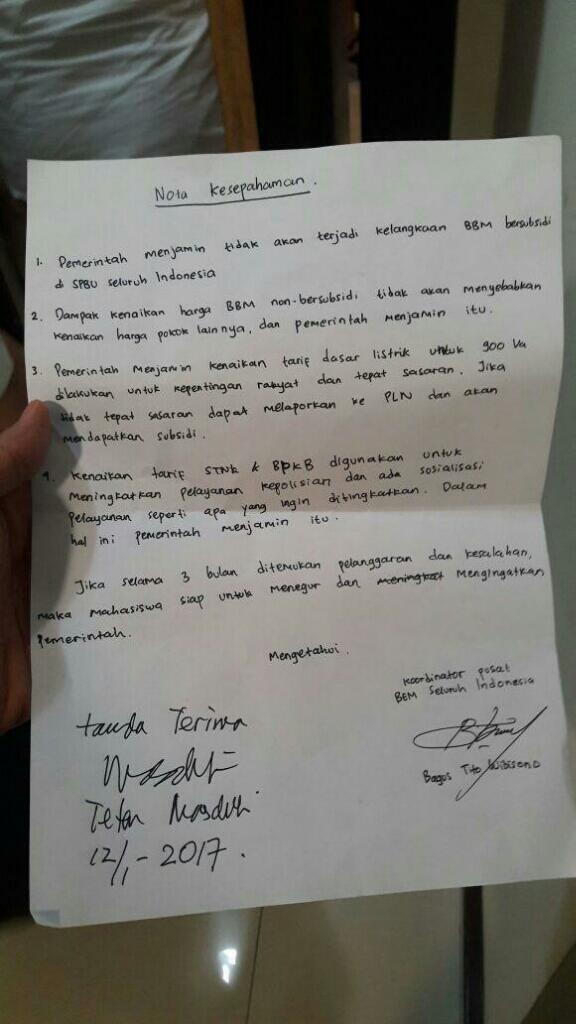 Nota Kesepahaman.
1. Pemerintah menjamin tidak akan terjadi kelangkaan BBM bersubsidi
di SPBU seluruh Indonesia
2. Dampak kenaikan harga BBM non-bersubsidi tidak akan menyebabkan
kenaikan harga pokok lainnya, dan pemerintah menjamin itu.
3. Pemerintah Menjamin kenaikan tarif dasar listrik untuk 900 Va
dilakukan untuk kepentingan rakyat dan tepat sasaran. Jika
tidak tepat sasaran dapat melaporkan ke PLN dan akan
mendapatkan subsidi.
4. Kenaikan tarif STNK & BPKB digunakan untuk
Meningkatkan pelayanan kepolisian dan ada sosialisasi
pelayanan seperti apa yang ingin ditingkatkan. Dalam
hal ini pemerintah menjamin itu.
Jika selama 3 bulan ditemukan pelanggaran dan kesalahan,
maka Mahasiswa siap untuk menegur dan Mengingatkan
Pemerintah.
Mengetahui.
Koordinator pusat
BEM Seluruh Indonesia
Bagus Tito Wibisono
tanda Terima
Teten Masduki
12/1-2017.